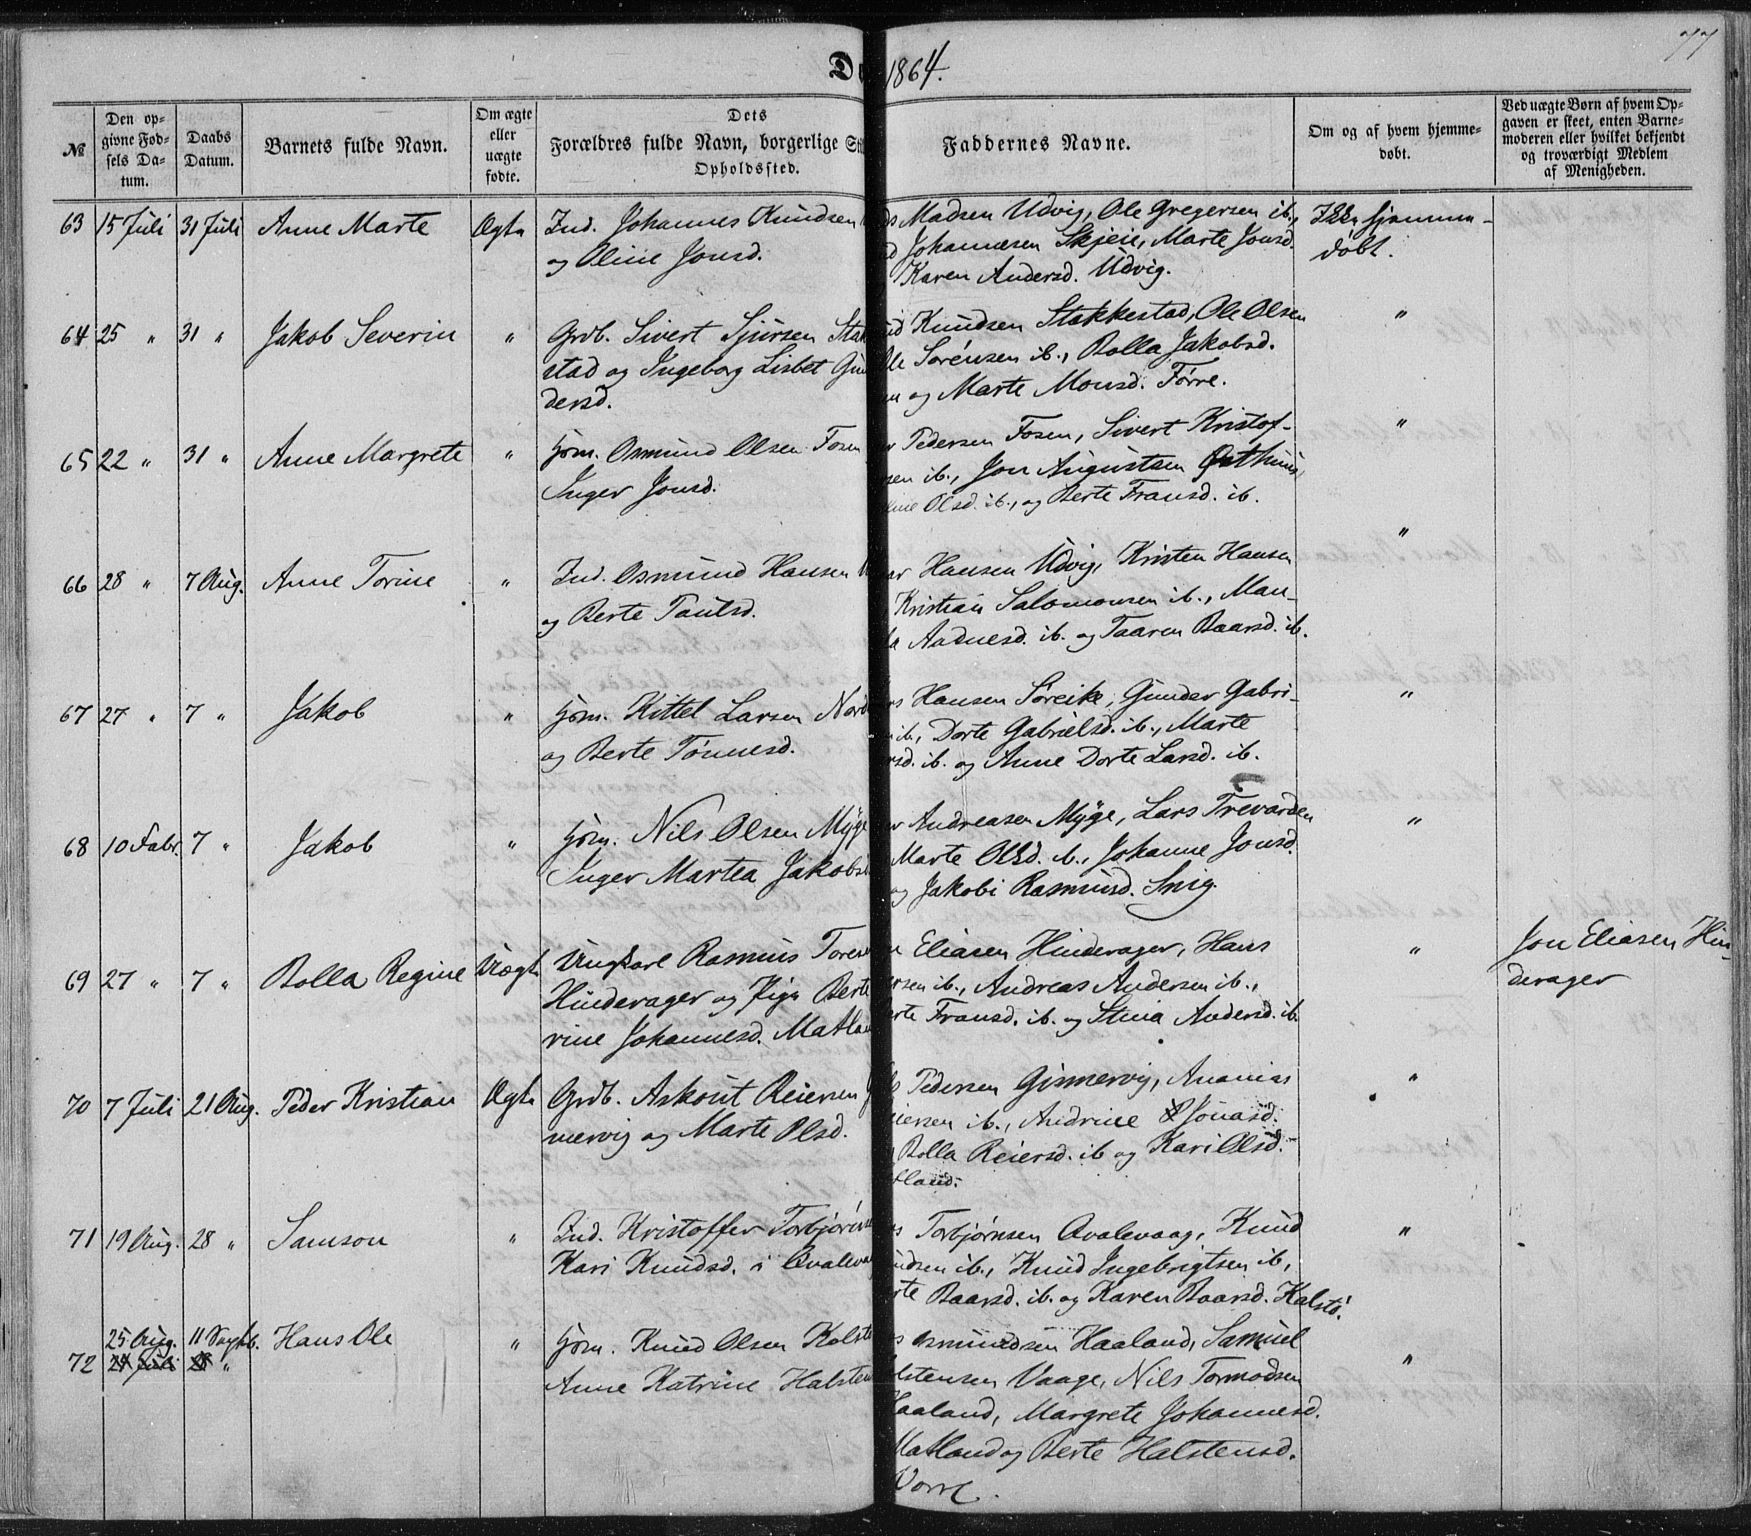 77
1864.
№
Den op-
givne Fød-
sels Da-
tum.
Daabs
Datum.
Barnets fulde Navn.
Om ægte
eller
uægte
fødte.
Dets
Forældres fulde Navn, borgerlige
Opholdssted.
Faddernes Navne.
Om og af hvem hjemme-
døbt.
Ved uægte Børn af hvem Op-
gaven er skeet, enten Barne-
moderen eller hvilket bekjendt
og troværdigt Medlem
af Menigheden.
63 15 Juli 31 Juli Anne Marte Ægte Ind. Johannes Knudsen
og Oline Jonsd.
Madsen Udvig, Ole Gregersen ib.,
Johannesen Skjeie, Marte Jonsd.
Karen Andersd. Udvig.
Ikke hjemme-
døbt.
64 25 " 31 " Jakob Severin " Grdb. Sivert Sjursen Stak
stad og Ingeborg Lisbet Gun
dersd.
Knudsen Stakkestad, Ole Olsen
Sørensen ib., Bolla Jakobsd.
og Marte Monsd. Førre.
"
65 22 " 31 " Anne Margrete " Hsm. Osmund Olsen Fosen
Inger Jonsd.
Pedersen Fosen, Sivert Kristof-
sen ib., Jon Augustsen Østhuus,
Olsd. ib., og Berte Fransd. ib.
"
66 28 " 7 Aug. Anne Torine " Ind. Osmund Hansen
og Berte Paulsd.
Hansen Udvig, Kristen Hansen
Kristian Salomonsen ib., Man-
Aadnesd. ib. og Taaren Baarsd. ib.
"
67 27 " 7 " Jakob " Hsm. Kittel Larsen Nord
og Berte Tønnesd.
Hansen Søreike, Gunder Gabri-
ib., Dorte Gabrielsd. ib., Marte
ib. og Anne Dorte Larsd. ib.
"
68 10 Febr. 7 " Jakob " Hsm. Nils Olsen Myge
Inger Martea Jakobsd
Andreasen Myge, Lars Trevarden
Marte Olsd. ib., Johanne Jonsd.
og Jakobi Rasmusd. Snig.
"
69 27 " 7 " Bolla Regine Uægte Ungkarl Rasmus Tores
Hinderager og Pige Berte
rine Johannesd. Matland
Eliasen Hinderager, Hans
ib., Andreas Andersen ib.,
Fransd. ib. og Stina Andersd. ib.
"
Jon Eliasen Hin-
derager
70 7 Juli 21 Aug. Peder Kristian Ægte Grdb. Askout Reiersen
mervig og Marte Olsd.
Pedersen Gismervig, Ananias
Reiersen ib., Andrine Jonasd.
Bolla Reiersd. ib og Kari Olsd.
tland.
"
71 19 Aug. 28 " Samson " Ind. Kristoffer Torbjørnsen
Kari Knudsd. i Qvaleva
Torbjørnsen Qvalevaag, Knud
Knudsen ib., Knud Ingebrigtsen ib.,
Baarsd. ib. og Karen Baarsd. Kalstø.
"
25 Aug. 11 Septb. Hans Ole " Hsm. Knud Olsen Kalstø
72 24 Juli 28 "
Anne Katrine Halsten
Osmundsen Haaland, Samuel
Halstensen Vaage, Nils Tormodsen
Haaland, Margrete Johannesd.
Matland og Berte Halstensd.
Vorre.
"